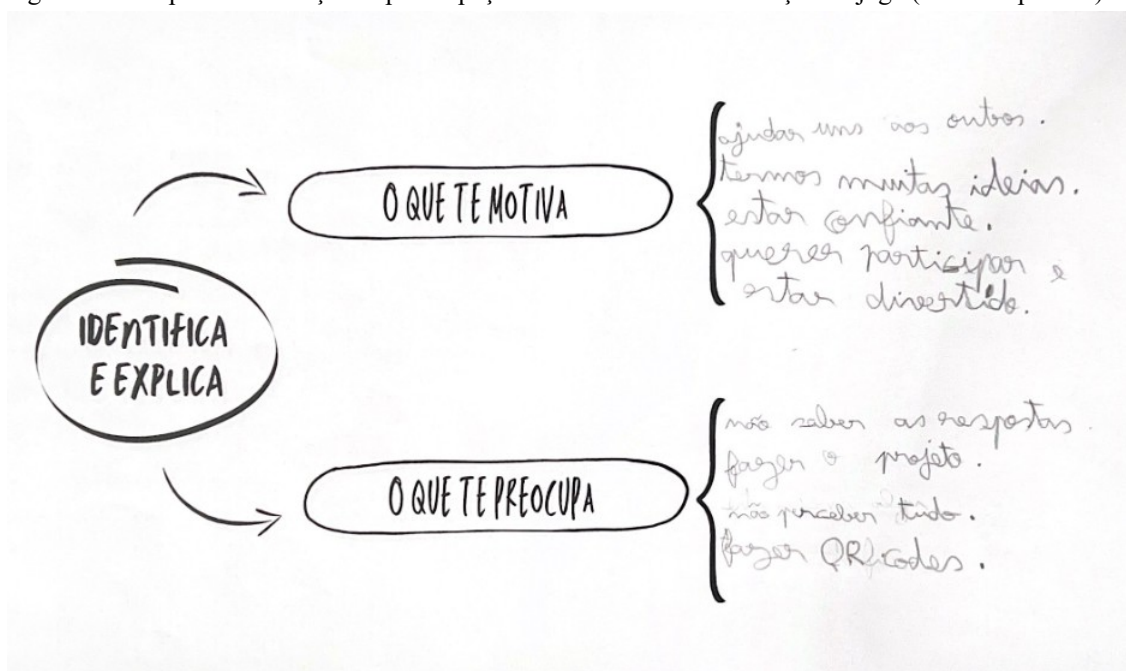 IDENTIFICA
E EXPLICA
O QUE TE MOTIVA
ajudar uns aos outros.
termos muitas ideias.
estar confiante.
querer participar e
estar divertido.
O QUE TE PREOCUPA
não saber as respostas.
fazer o projeto.
não perceber tudo.
fazer QR codes.